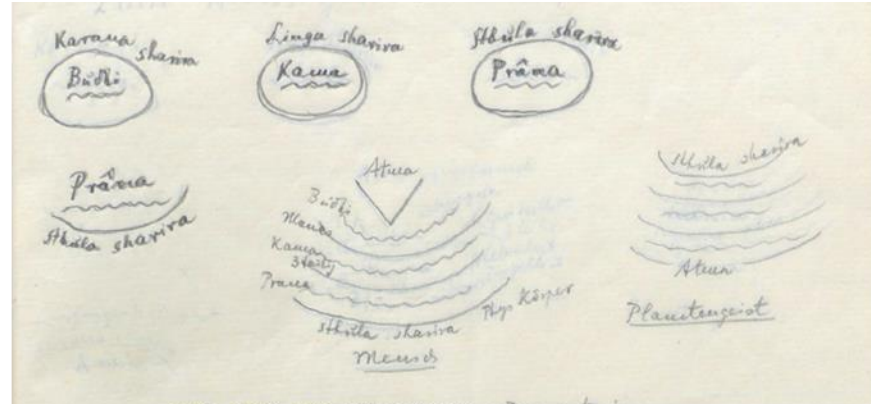 Karana sharira
Budhi
Linga sharira
Kama
Sthûla sharira
Prâna
Prâna
sthûla sharira
Atma
Budhi
Manas
Kama
Prana
sthûla sharira
Phys Körper
Mensch
sthûla sharira
Atma
Planetengeist